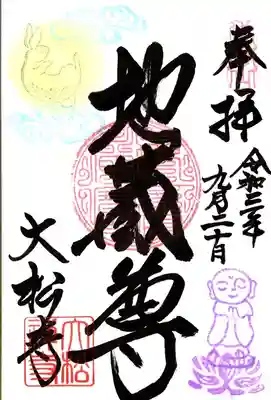 奉拝
令和三年
九月二十日
地蔵尊
大松寺